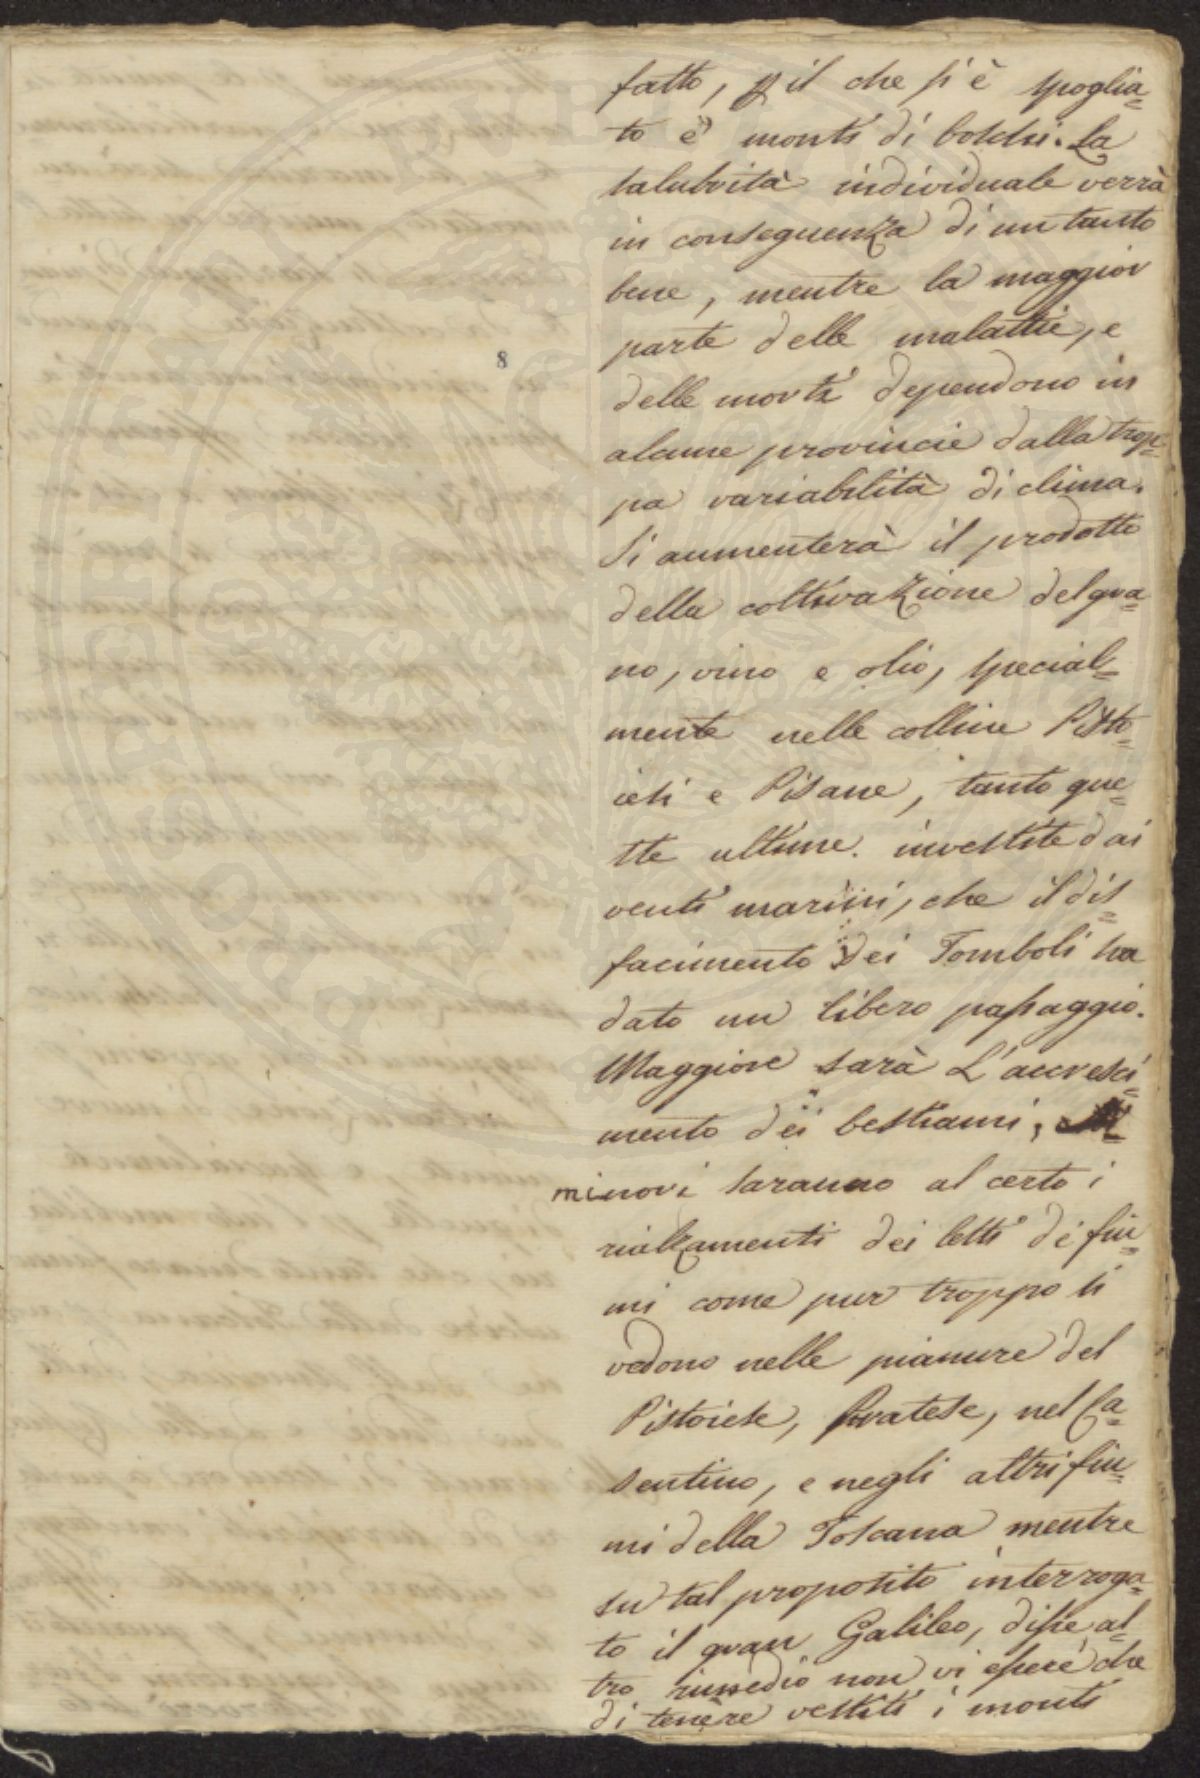 fatto, p il che si è spoglia=
to e' monti di boschi. La
salubrità individuale verrà
in conseguenza di un tanto
bene, mentre la maggior
parte delle malattie, e
8
delle morti dependono in
alcune provincie dalla trop=
pa variabilità di clima.
Si aumenterà il prodotto
della coltivazione del gra=
no, vino e olio, special=
mente nelle colline Pisto=
iesi e Pisane, tanto que=
ste ultime. investite dai
venti marini, che il dis=
facimento dei Tomboli ha
dato un libero passaggio.
Maggiore sarà L'accresci=
mento dei bestiami,
minori saranno al certo i
rialzamenti dei letti di fiu=
mi come pur troppo si
vedono nelle pianure del
Pistoiese, Pratese, nel Ca=
sentino, e negli altri fiu=
mi della Toscana mentre
su tal proposito interroga=
to il gran Galileo, disse al=
tro rimedio non vi essere che
di tenere vestiti i monti